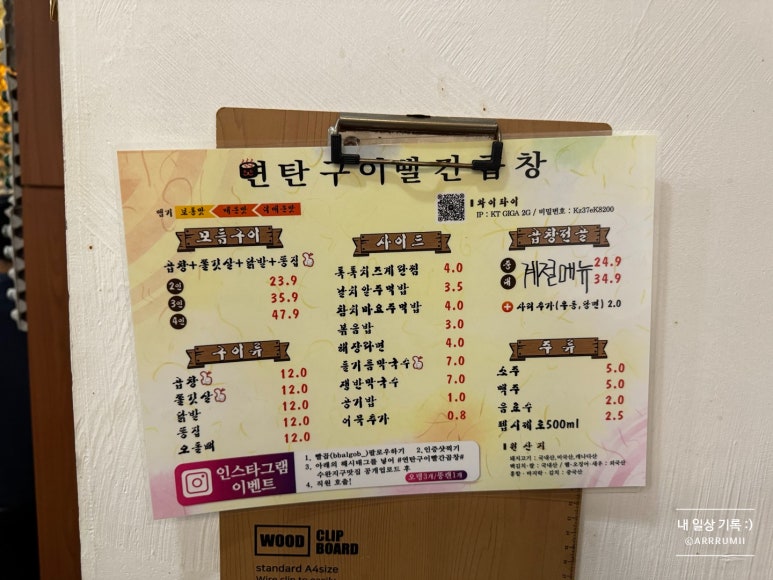 연탄구이빨간곱창
맵기 보통맛 매운맛 더매운맛
와이파이
IP : KT GIGA 2G / 비밀번호 : Kz37eK8200
모듬구이
곱창+쫄깃살+닭발+똥집
2인 23.9
3인 35.9
4인 47.9
구이류
곱창 12.0
쫄깃살 12.0
닭발 12.0
똥집 12.0
오돌뼈 12.0
사이드
톡톡치즈계란찜 4.0
날치알주먹밥 3.5
참치마요주먹밥 4.0
볶음밥 3.0
해장라면 4.0
들기름막국수 7.0
쟁반막국수 7.0
공기밥 1.0
어묵추가 0.8
곱창전골
중 24.9
대 34.9
계절메뉴
사리추가(우동,당면) 2.0
주류
소주 5.0
맥주 5.0
음료수 2.0
펩시제로500ml 2.5
원산지
돼지고기 : 국내산,미국산,캐나다산
인스타그램
이벤트
1. 빨곱(bhalgob_)팔로우하기 2.인증샷찍기
3. 아래의 해시태그를 넣어 #연탄구이빨간곱창#
수완지구맛집 공개업로드 후
4. 직원 호출!
WOOD CLIP
BOARD
standard A4size
Wire clip to easily
내 일상 기록 :)
@ARRRUMII